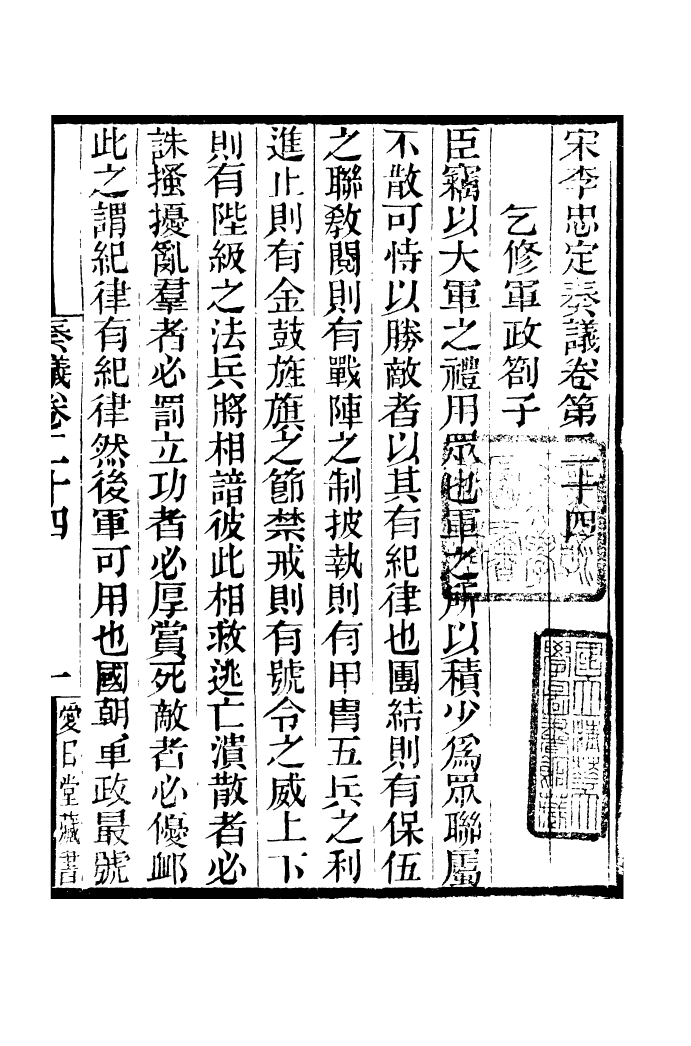 宋李忠定奏議卷第二十四
乞修軍政劄子
臣竊以大軍之禮用眾也軍之所以積少為眾聯屬
不散可恃以勝敵者以其有紀律也團結則有保伍
之聯敎閱則有戰陣之制披執則有甲胄五兵之利
進止則有金鼓旌旗之節禁戒則有號令之威上下
則有陛級之法兵將相諳彼此相救逃亡潰散者必
誅搔擾亂羣者必罰立功者必厚賞死敵者必優卹
此之謂紀律有紀律然後軍可用也國朝軍政最號
奏議卷二十四
一
愛日堂藏書